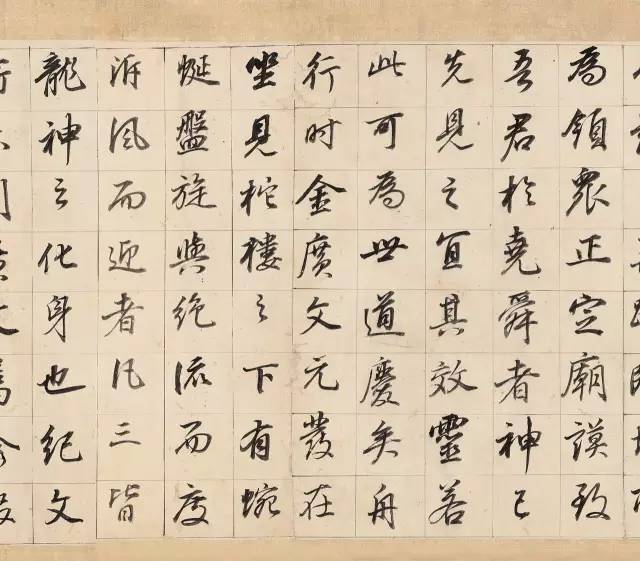 為領眾正定廟謨致
吾君於堯舜者神已
先見之宜其效靈若
此可為世道慶矣舟
行时金廣文元發在
坐見柁樓之下有蜿
蜒盤旋與絶流而度
泝風而迎者凡三皆
龍神之化身也紀文